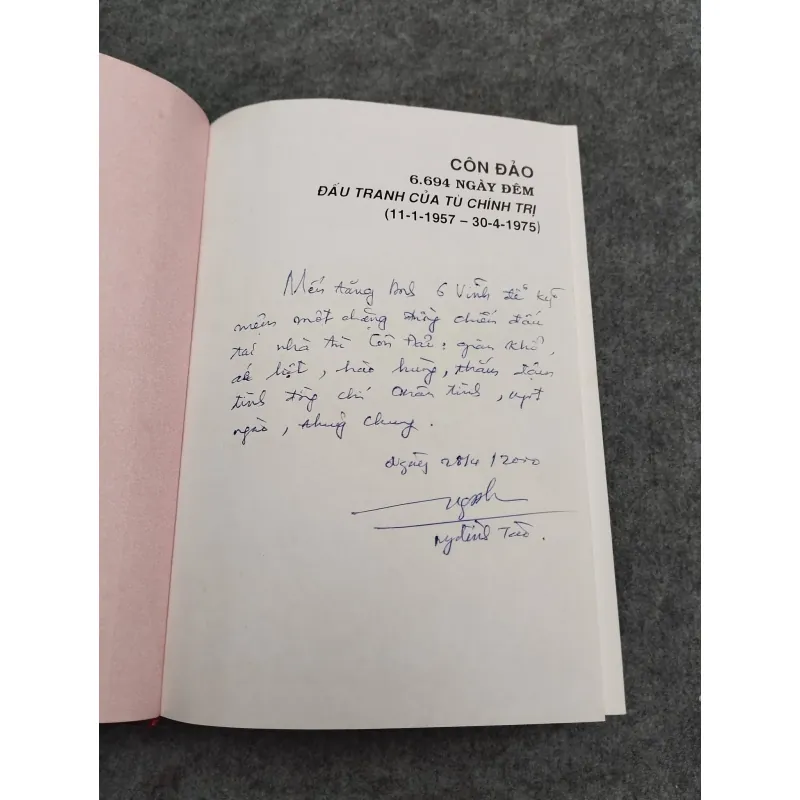 CÔN ĐẢO
6.694 NGÀY ĐÊM
ĐẤU TRANH CỦA TÙ CHÍNH TRỊ
(11-1-1957 – 30-4-1975)
Mến tặng Anh 6 Vinh để kỷ
niệm một chặng đường chiến đấu
tại nhà tù Côn Đảo: gian khổ,
ác liệt, hào hùng, thắm đậm
tình đồng chí chân tình, ngọt
ngào, thuỷ chung.
Ngày 28/4/2000